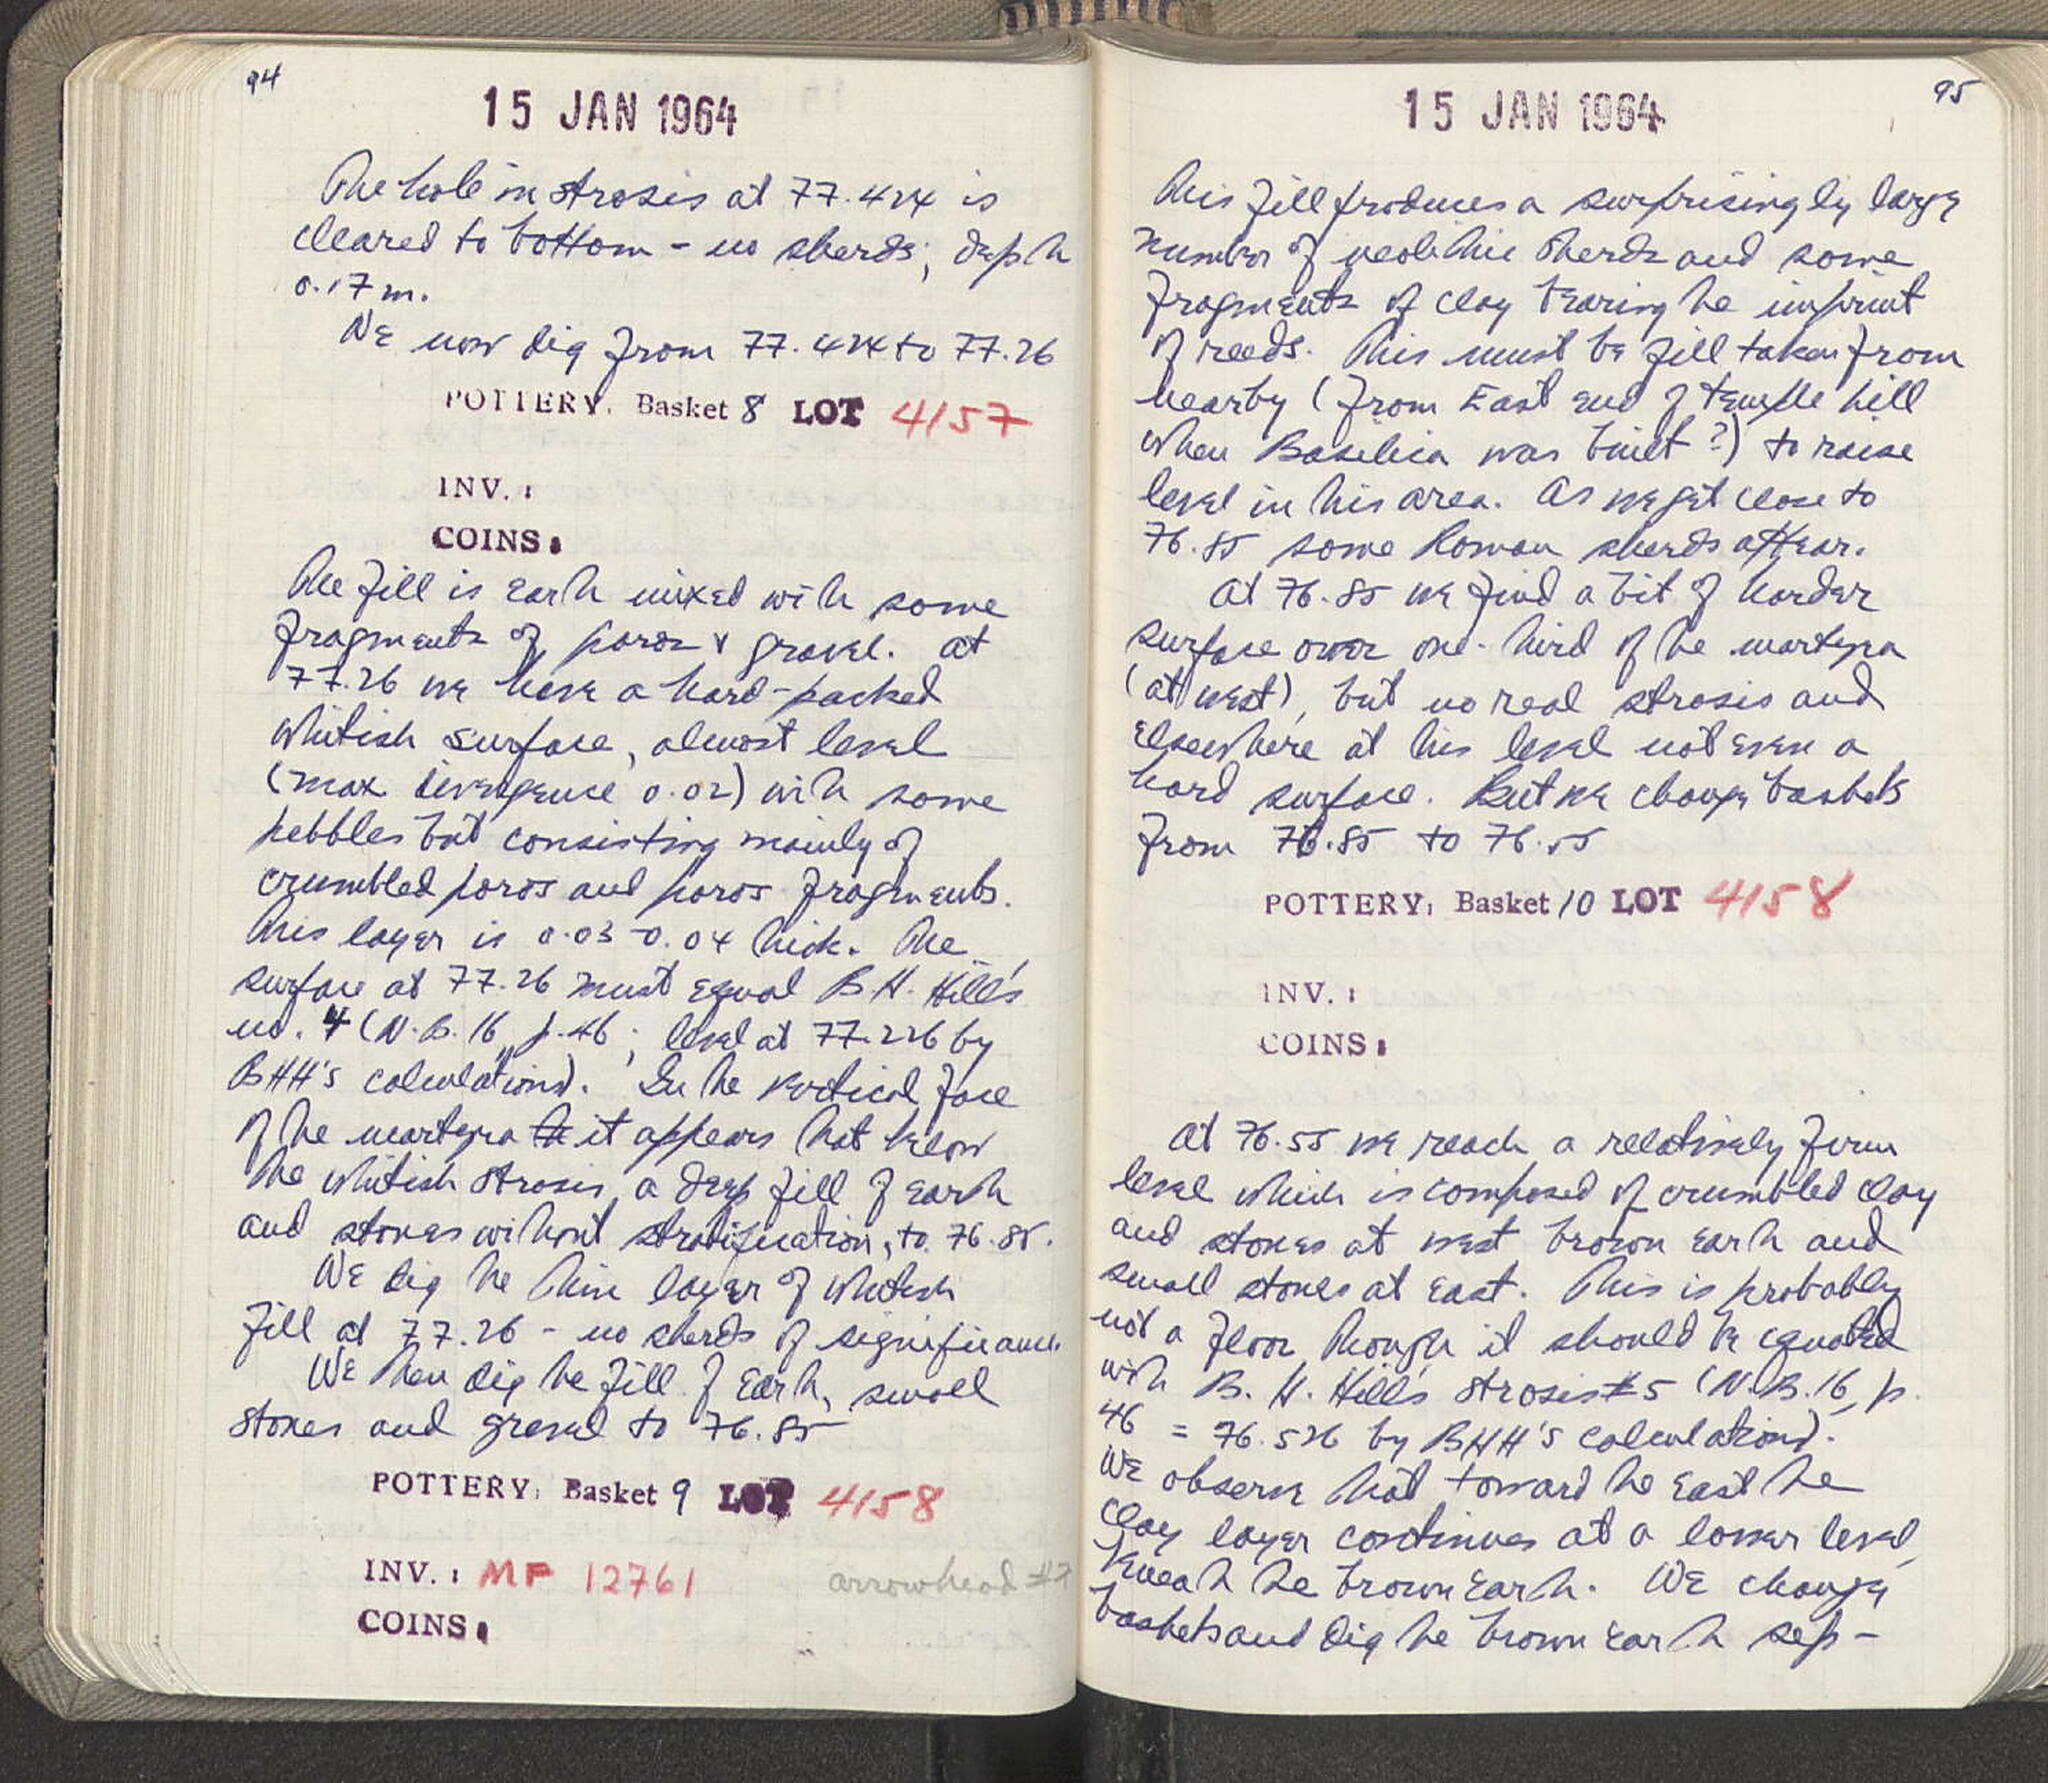 94
15 JAN 1964
The hole in strosis at 77.424 is
cleared to bottom - no sherds; depth
0.17 m.
We now dig from 77.424 to 77.26
POTTERY: Basket 8 LOT 4157
INV. :
COINS:
The fill is earth mixed with some
fragments of poros & gravel. At
77.26 we have a hard-packed
whitish surface, almost level
(max divergence 0.02) with some
pebbles but consisting mainly of
crumbled poros and poros fragments.
This layer is 0.03-0.04 thick. The
surface at 77.26 must equal B.H. Hill's
no. 4 (N.B. 16, p. 46; level at 77.226 by
BHH's calculations). In the vertical face
of the martyra it appears that below
the whitish strosis, a deep fill of earth
and stones without stratification, to 76.85.
We dig the thin layer of whitish
fill at 77.26 - no sherds of significance.
We then dig the fill of earth, small
stones and gravel to 76.85
POTTERY: Basket 9 LOT 4158
INV. : MF 12761 arrowhead #2
COINS:
95
15 JAN 1964
This fill produces a surprisingly large
number of neolithic sherds and some
fragments of clay bearing the imprint
of reeds. This must be fill taken from
nearby (from East end of temple hill
when Basilica was built?) to raise
level in this area. As we get close to
76.85 some Roman sherds appear.
At 76.85 we find a bit of harder
surface over one-third of the martyra
(at west), but no real strosis and
elsewhere at this level not even a
hard surface. But we change baskets
from 76.85 to 76.55
POTTERY: Basket 10 LOT 4158
INV. :
COINS:
At 76.55 we reach a relatively firm
level which is composed of crumbled clay
and stones at west brown earth and
small stones at east. This is probably
not a floor though it should be equated
with B. H. Hill's strosis #5 (N.B. 16, p.
46 = 76.526 by BHH's calculations).
We observe that toward the East the
clay layer continues at a lower level,
beneath the brown earth. We change
baskets and dig the brown earth sep-